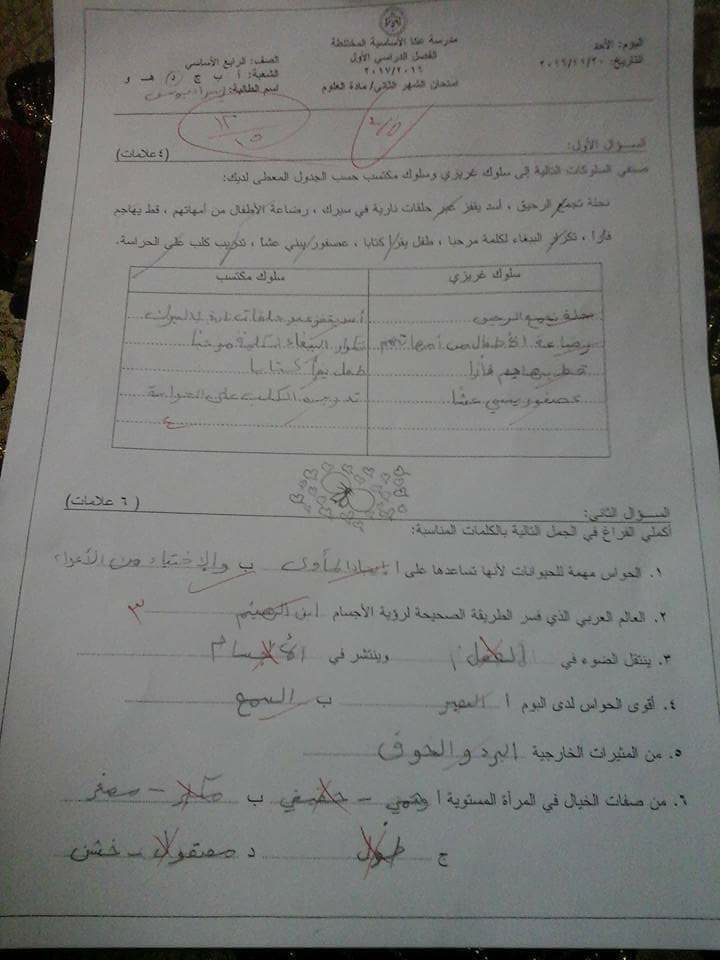 مدرسة عكا الأساسية المختلطة
اليوم: الأحد
الفصل الدراسي الأول
الصف: الرابع الأساسي
التاريخ: ٢٠١٦/١١/٢٠
٢٠١٧/٢٠١٦
الشعبة: أ ب ج د هـ و
امتحان الشهر الثاني/ مادة العلوم
اسم الطالبة:
١٢
١٥
السؤال الأول:
(٤ علامات)
صنفي السلوكات التالية إلى سلوك غريزي وسلوك مكتسب حسب الجدول المعطى لديك:
نحلة تجمع الرحيق ، أسد يقفز عبر حلقات نارية في سيرك ، رضاعة الأطفال من أمهاتهم ، قط يهاجم
فأرا ، تكرار الببغاء لكلمة مرحبا ، طفل يقرأ كتابا ، عصفور يبني عشا ، تدريب كلب على الحراسة.
سلوك غريزي	سلوك مكتسب
نحلة تجمع الرحيق	أسد يقفز عبر حلقات نارية
رضاعة الأطفال من أمهاتهم	تكرار الببغاء لكلمة مرحبا
قط يهاجم فأرا	طفل يقرأ كتابا
عصفور يبني عشا	تدريب الكلب على الحراسة
٤
السؤال الثاني:
(٦ علامات)
أكملي الفراغ في الجمل التالية بالكلمات المناسبة:
١. الحواس مهمة للحيوانات لأنها تساعدها على أ إيجاد المأوى ب والإختباء من الأعداء
٢. العالم العربي الذي فسر الطريقة الصحيحة لرؤية الأجسام ابن الهيثم ٣
٣. ينتقل الضوء في وينتشر في الأجسام
٤. أقوى الحواس لدى البوم أ البصر ب السمع
٥. من المثيرات الخارجية البرد والخوف
٦. من صفات الخيال في المرآة المستوية أ وهمي - حقيقي ب مكبر - مصغر
ج طول د مصقول - خشن